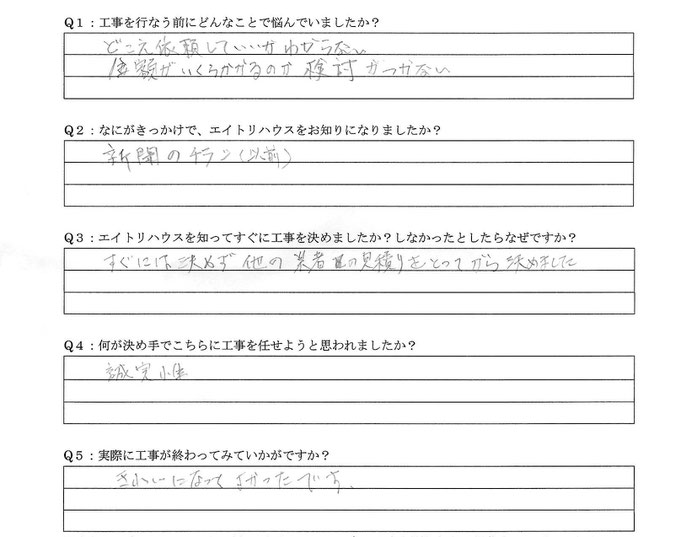 Q1：工事を行なう前にどんなことで悩んでいましたか？
どこえ依頼していいかわからない
金額がいくらかかるのか検討がつかない
Q2：なにがきっかけで、エイトリハウスをお知りになりましたか？
新聞のチラシ（以前）
Q3：エイトリハウスを知ってすぐに工事を決めましたか？しなかったとしたらなぜですか？
すぐには決めず他の業者の見積りをとってから決めました
Q4：何が決め手でこちらに工事を任せようと思われましたか？
誠実性
Q5：実際に工事が終わってみていかがですか？
きれいになってよかったです。